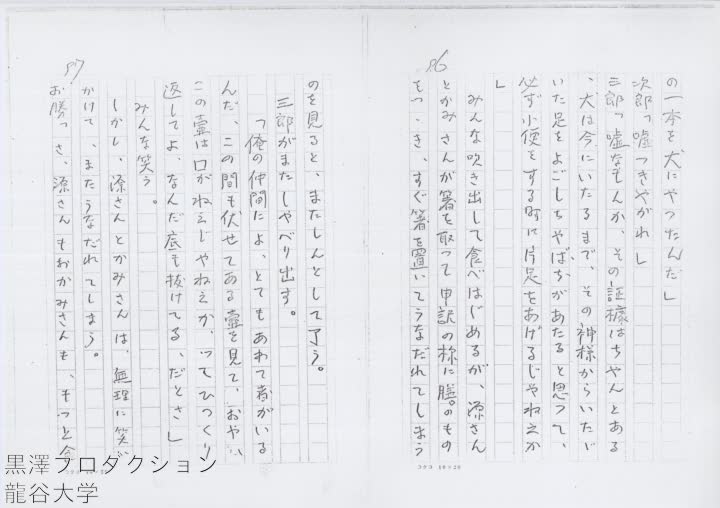 86
の一本を犬にやつたんだ」
次郎「嘘つきやがれ」
三郎「嘘なもんか、その証據はちやんとある
、犬は今にいたるまで、その神様からいたゞ
いた足をよごしちやばちがあたると思つて、
必ず小便をする時に片足をあげるじやねえか
」
みんな吹き出して食べはじめるが、源さん
とかみさんが箸を取つて申訳の様に膳のもの
をつゝき、すぐ箸を置いてうなだれてしまう
87
のを見ると、またしんとして了う。
三郎がまたしやべり出す。
「俺の仲間によ、とてもあわて者がいる
んだ、この間も伏せてある壷を見て、おや、
この壷は口がねえじやねえか、つてひつくり
返してよ、なんだ底も抜けてる、だとさ」
みんな笑う。
しかし、源さんとかみさんは、無理に笑い
かけて、またうなだれてしまう。
お勝「さ、源さんもおかみさんも、もつと
コクヨ 10×20
黒澤プロダクション
龍谷大学